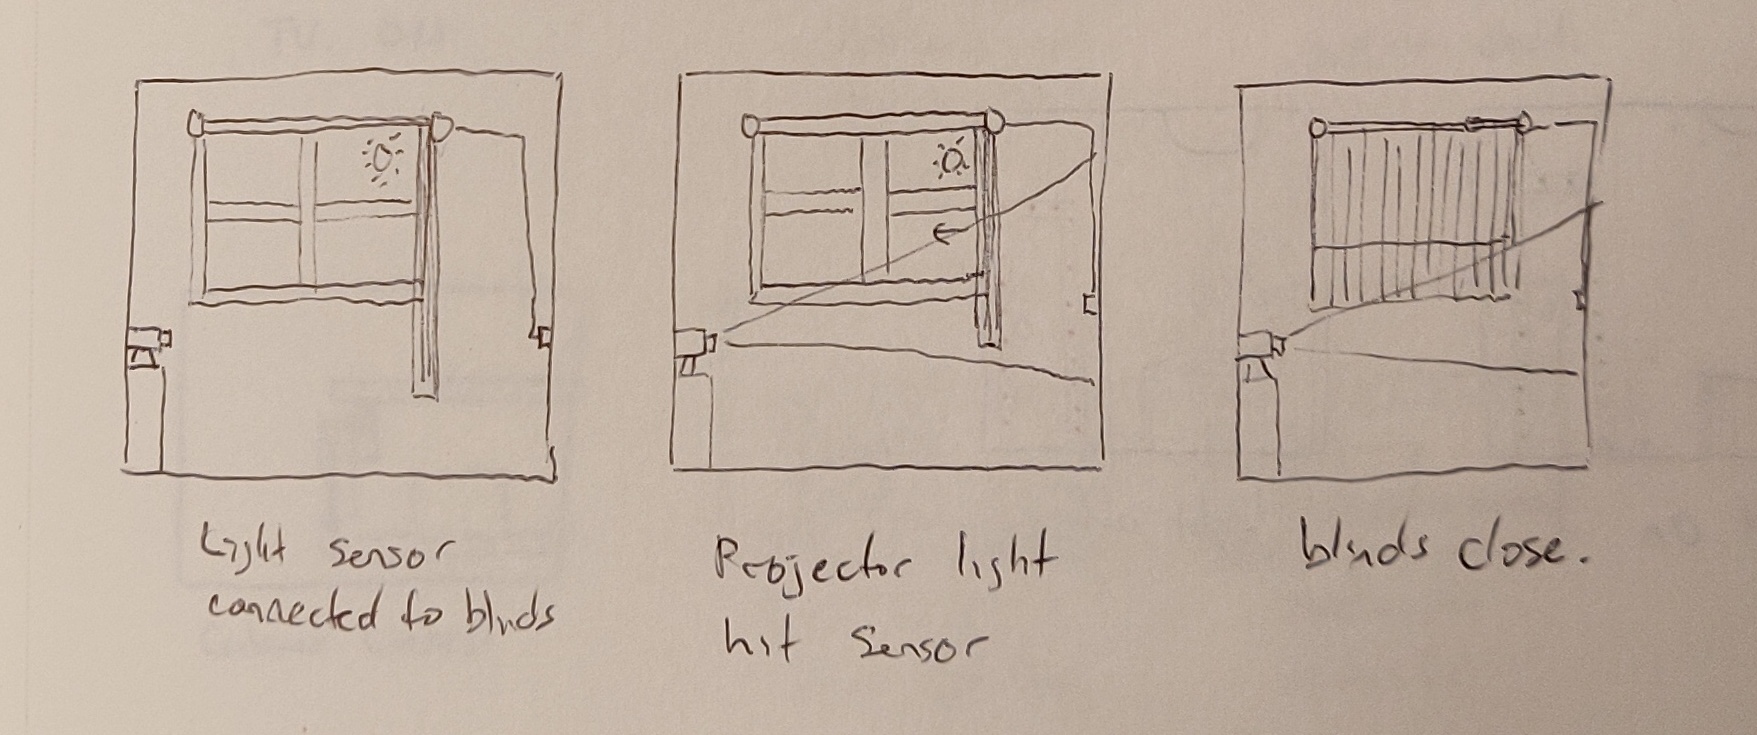 Light sensor
connected to blinds
Projector light
hit sensor
blinds close.